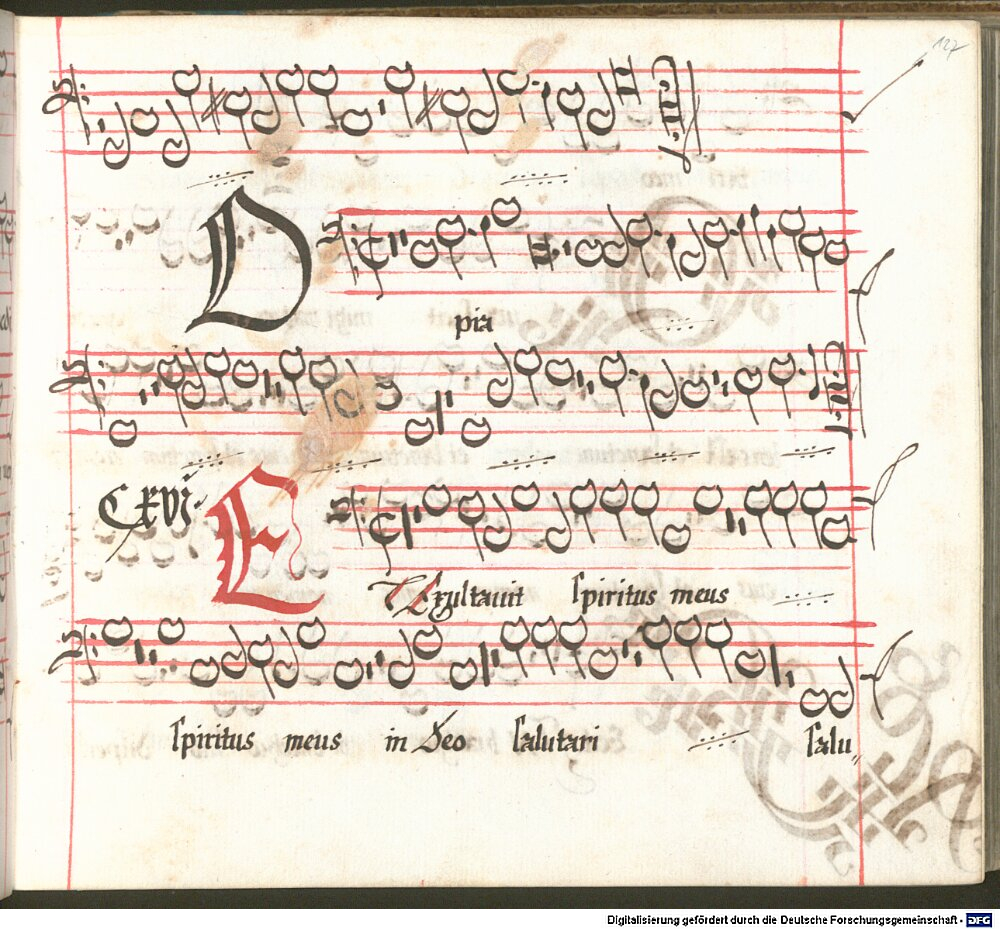 127
O
pia
CXVI.
E
Et Exultavit spiritus meus
spiritus meus in Deo salutari salu„
Digitalisierung gefördert durch die Deutsche Forschungsgemeinschaft - DFG